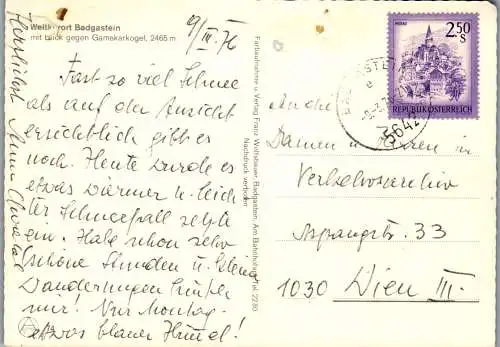 Weltkurort Badgastein
mit Blick gegen Gamskarkogel, 2465 m
9/III.76
Fast so viel Schnee
als auf der Ansicht
ersichtlich gibt es
noch. Heute wurde es
etwas wärmer u. leich
ter Schneefall setzte
ein. Habe schon sehr
schöne Stunden u. kleine
Wanderungen hinter
mir! Nur Montag
etwas blauer Himmel!
Herzlichst
Farbaufnahme u. Verlag Franz Wolfsbauer, Badgastein, Am Bahnhof, Tel. 2230
Nachdruck verboten
MURAU
2.50
S
REPUBLIK ÖSTERREICH
5642
An die
Damen u. Herren im
Verkehrsarchiv
Aspangstr. 33
1030 Wien III.